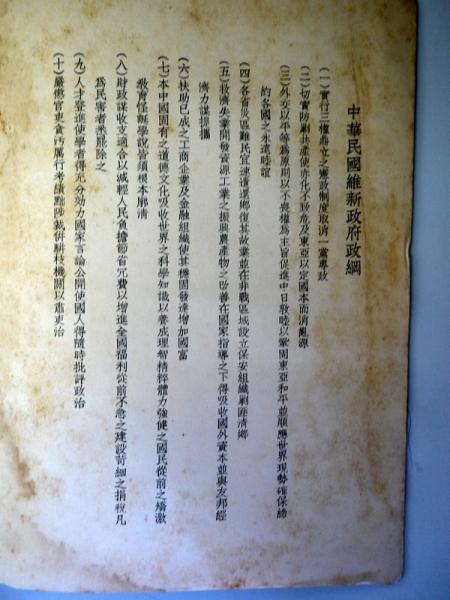 中華民國維新政府政綱
(一)實行三權鼎立之憲政制度取消一黨專政
(二)切實防剿共產使赤化不致危及東亞以定國本而消亂源
(三)外交以平等為原則以不喪權為主旨促進中日敦睦以鞏固東亞和平並順應世界現勢確保締
約各國之永遠睦誼
(四)各省災區難民宜速遣還鄉復其故業並在非戰區域設立保安組織剿匪清鄉
(五)救濟失業開發資源工業之振興農產物之改善在國家指導之下得吸收國外資本並與友邦經
濟力謀提攜
(六)扶助已成之工商企業及金融組織使其穩固發達增加國富
(七)本中國固有之道德文化吸收世界之科學知識以養成理智精粹體力強健之國民從前之矯激
教育怪誕學說皆須根本廓清
(八)財政謀收支適合以減輕人民負擔節省冗費以增進全國福利從前不急之建設苛細之捐稅凡
為民害者悉罷除之
(九)人才登進使學者得充分効力國家言論公開使國人得隨時批評政治
(十)嚴懲官吏貪污厲行考績黜陟裁併駢枝機關以肅吏治